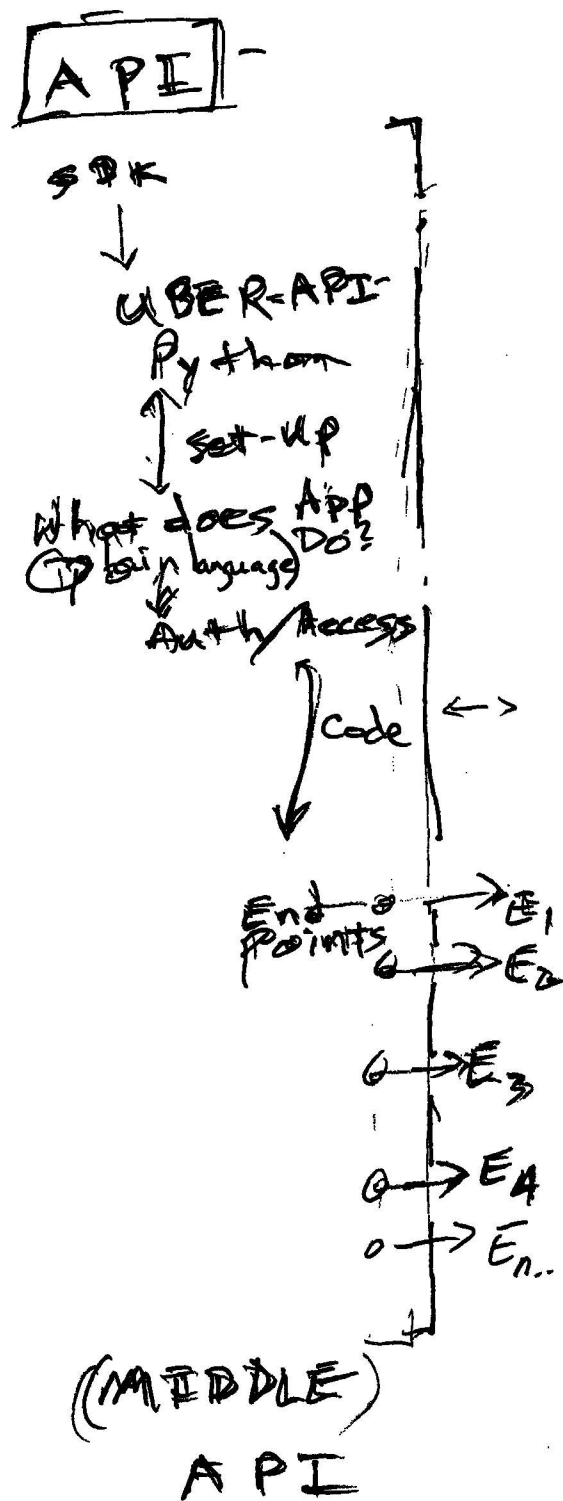 API
SDK
UBER-API-
Python
set-up
What does App
Do?
(plain language)
Auth/Access
Code
End
Points
E1
E2
E3
E4
En..
(MIDDLE)
API